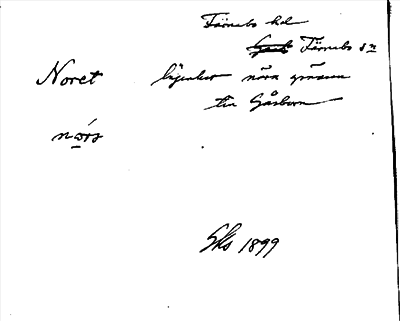 Färnebo hd
Färnebo sn
Noret lägenhet nära gränsen
till Gåsborn
nórs
Gks 1899